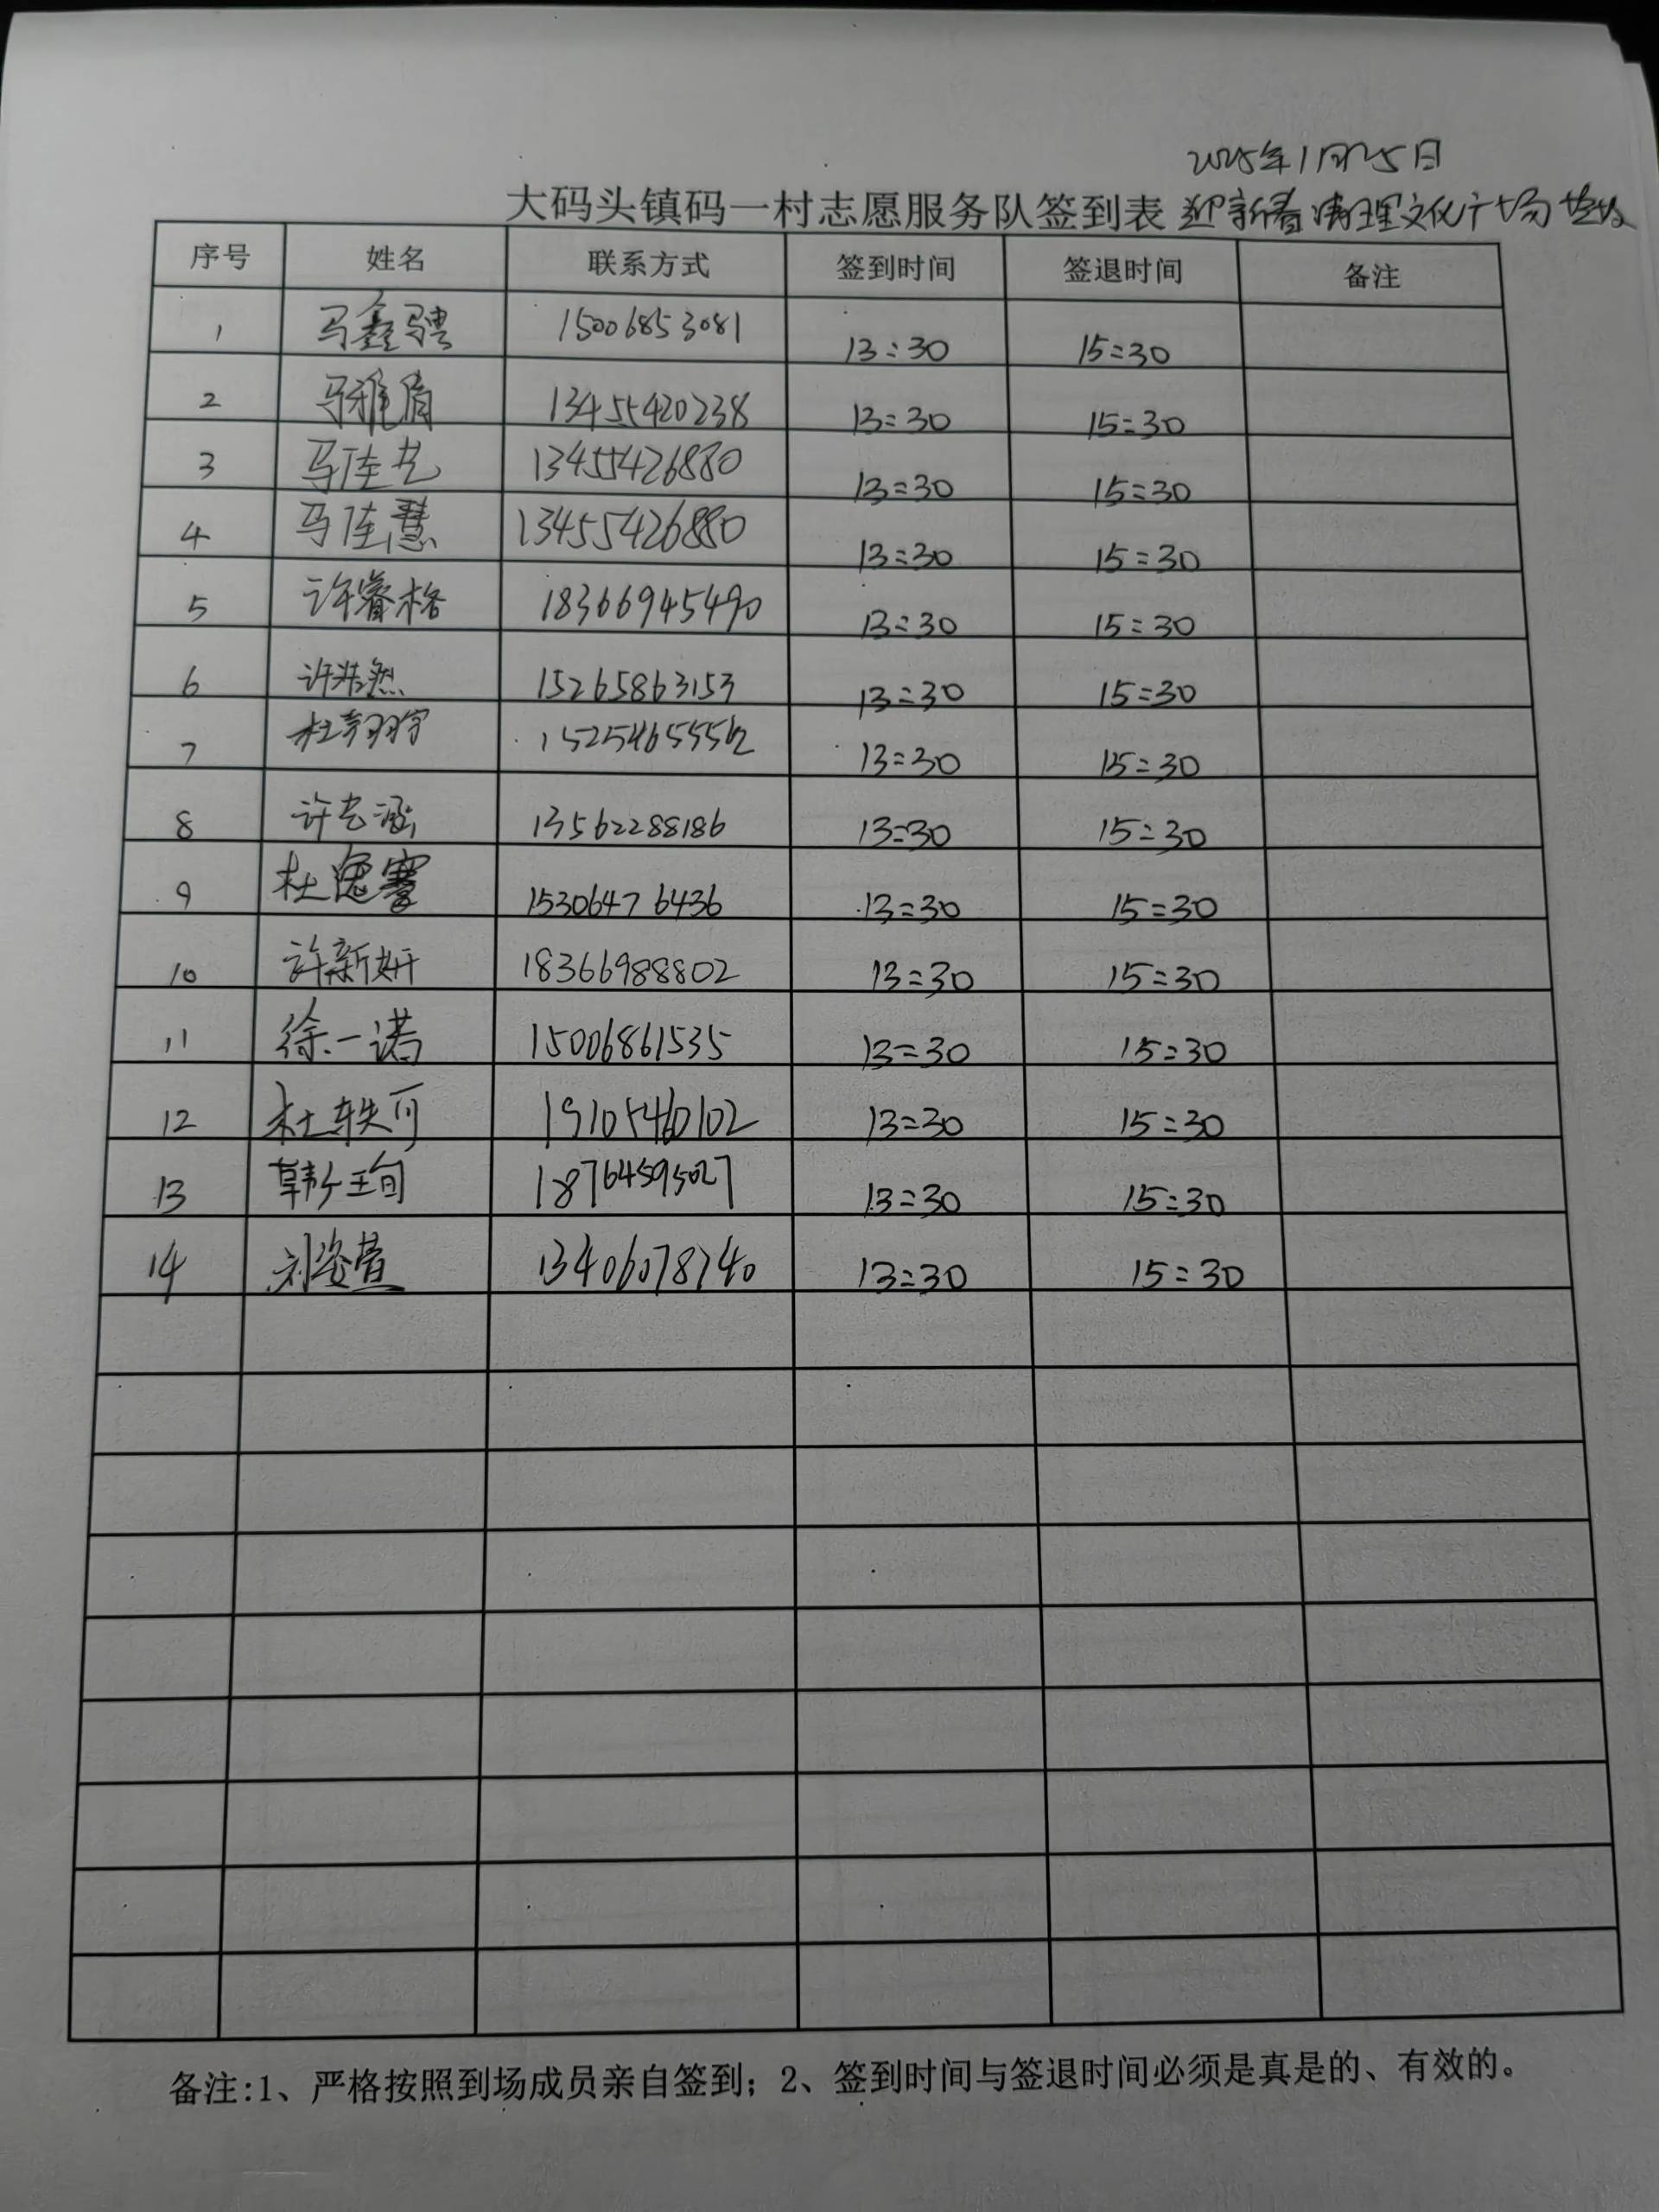 2025年1月25日
大码头镇码一村志愿服务队签到表 迎新春清理文化广场垃圾
序号 姓名 联系方式 签到时间 签退时间 备注
1 马鑫骋 15006853081 13:30 15:30
2 马雅涓 13455420238 13:30 15:30
3 马佳艺 13455426880 13:30 15:30
4 马佳慧 13455426880 13:30 15:30
5 许睿格 18366945490 13:30 15:30
6 许浩然 15265863153 13:30 15:30
7 杜翔宇 15254655562 13:30 15:30
8 许艺涵 13562288186 13:30 15:30
9 杜 15306476436 13:30 15:30
10 许新妍 18366988802 13:30 15:30
11 徐一诺 15006861535 13:30 15:30
12 杜轶可 19105460102 13:30 15:30
13 韩珣 18764595027 13:30 15:30
14 刘姿萱 13406078740 13:30 15:30
备注:1、严格按照到场成员亲自签到；2、签到时间与签退时间必须是真是的、有效的。